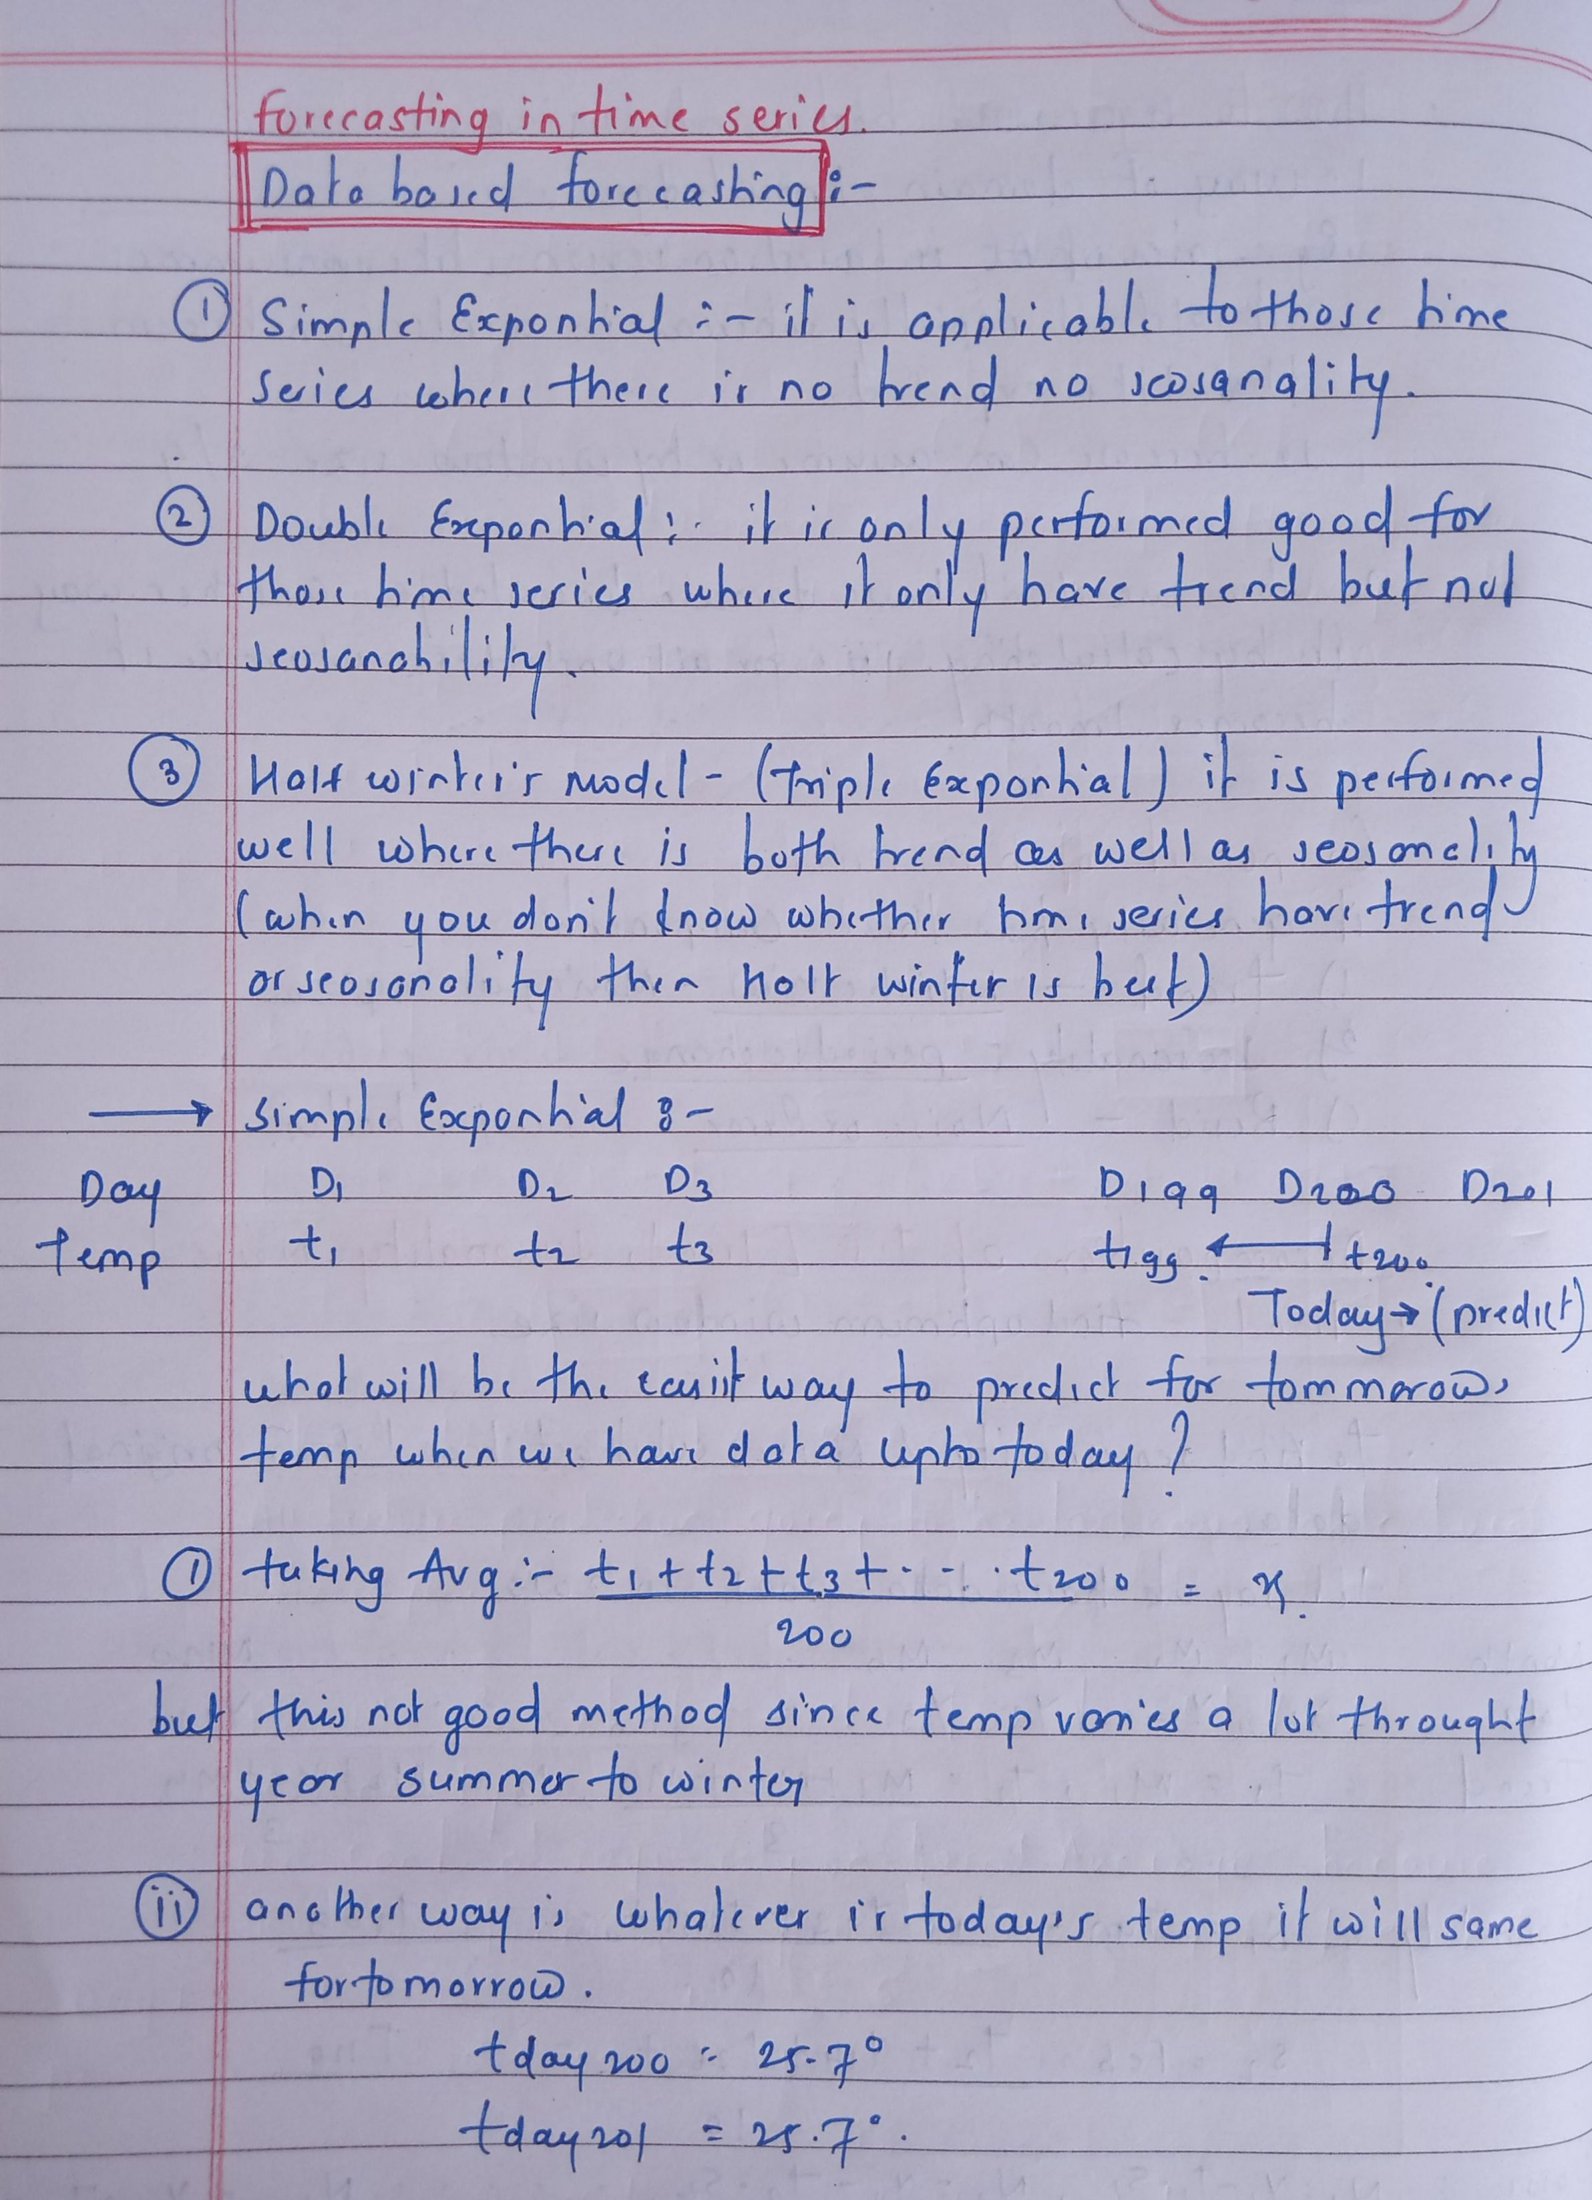 forecasting in time series.
Data based forecasting :-
① Simple Expontial :- it is applicable to those time
series where there is no trend no seosanality.
② Double Expontial :- it is only performed good for
those time series where it only have trend but not
seosanability.
③ Halt winter's model - (Triple Expontial) it is performed
well where there is both trend as well as seosonality
(when you don't know whether time series have trend
or seosonality then Holt winter is best)
→ simple Expontial :-
Day D1 D2 D3 D199 D200 D201
Temp t1 t2 t3 t199 ← t200
Today → (predict)
what will be the easiest way to predict for tommorows
temp when we have data upto today?
① taking Avg :- t1 + t2 + t3 + . - . . t200 = x
200
but this not good method since temp varries a lot throught
year summer to winter
ⅱ another way is whatever is today's temp it will same
for tomorrow.
tday 200 = 25.7°
tday 201 = 25.7°.